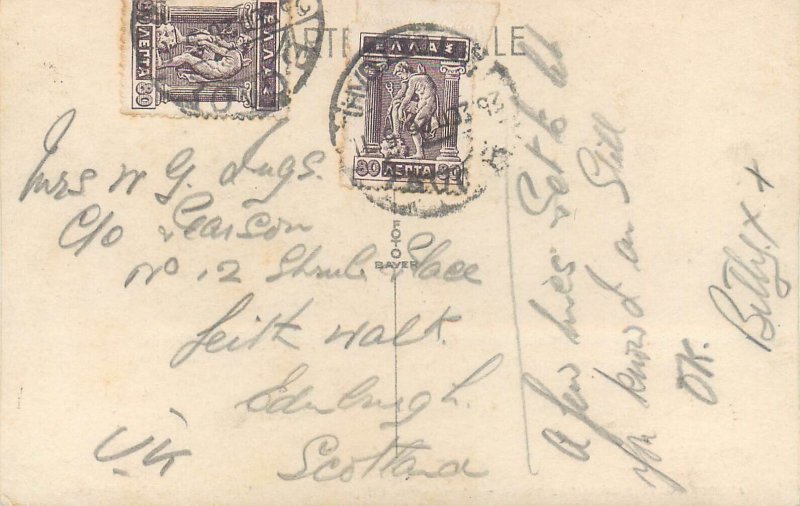 ΕΛΛΑΣ
80 ΛΕΠΤΑ 80
ΕΛΛΑΣ
80 ΛΕΠΤΑ 80
FOTO
BAYER
Mrs W G.
C/o Pearson
No 12 Place
Leith Walk.
Edinburgh.
Scotland
U.K
A few lines to let
you know I am Still
OK.
Billy. x x